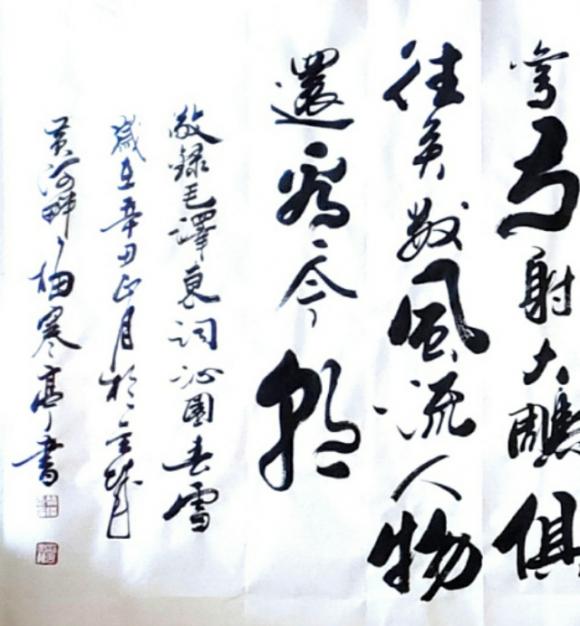 弯弓射大雕俱
往矣数風流人物
還看今朝
敬録毛澤東詞沁園春雪
歲在辛丑正月於金城
黄河畔梅寒亭書